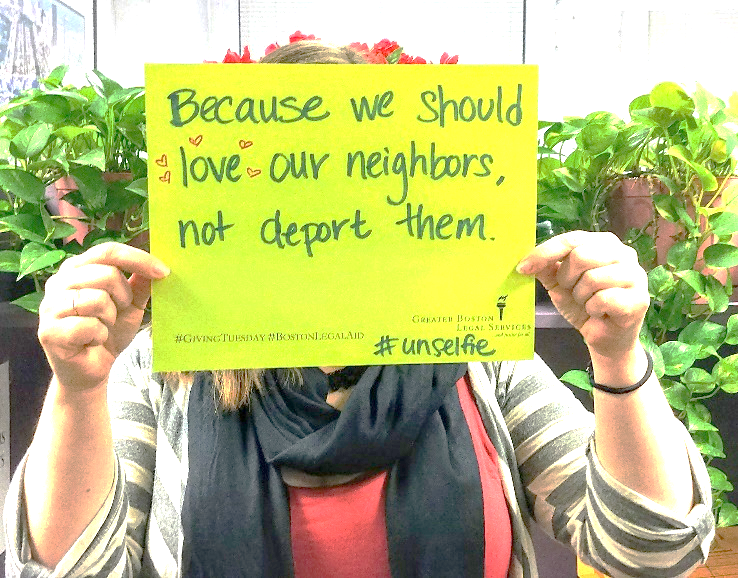 Because we should
love our neighbors,
not deport them.
GREATER BOSTON
LEGAL SERVICES
and justice for all
#GIVINGTUESDAY #BOSTONLEGALAID
#unselfie